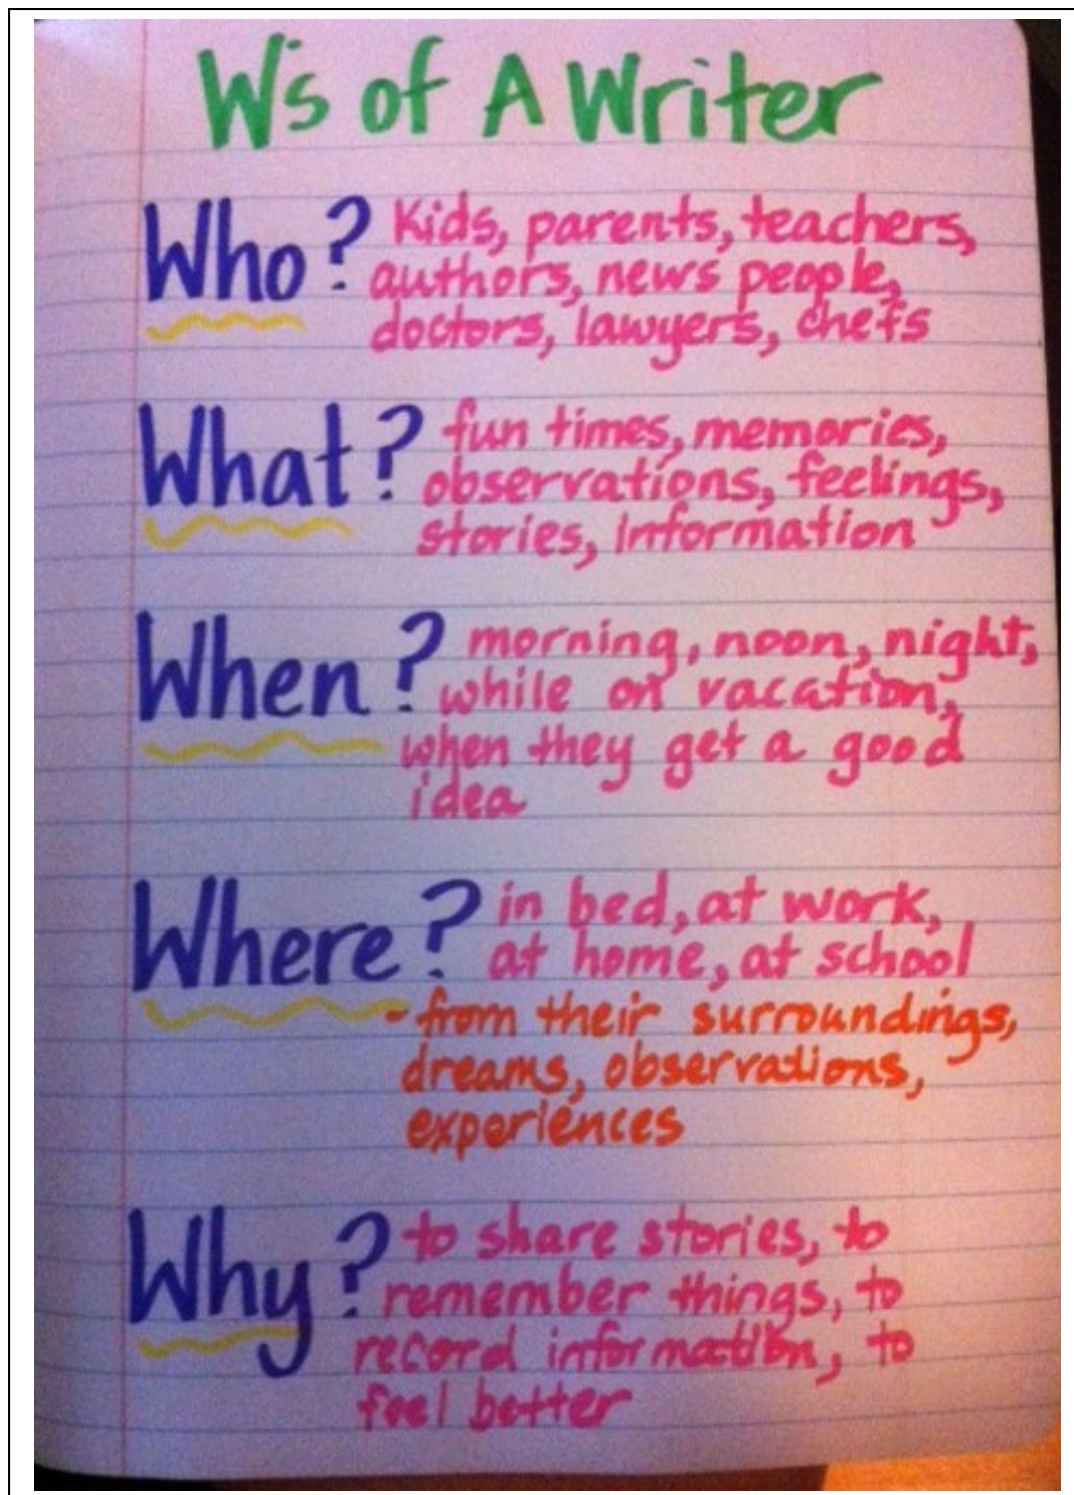 W's of A Writer
Who? Kids, parents, teachers,
authors, news people,
doctors, lawyers, chefs
What? fun times, memories,
observations, feelings,
stories, Information
When? morning, noon, night,
while on vacation,
when they get a good
idea
Where? in bed, at work,
at home, at school
- from their surroundings,
dreams, observations,
experiences
Why? to share stories, to
remember things, to
record information, to
feel better